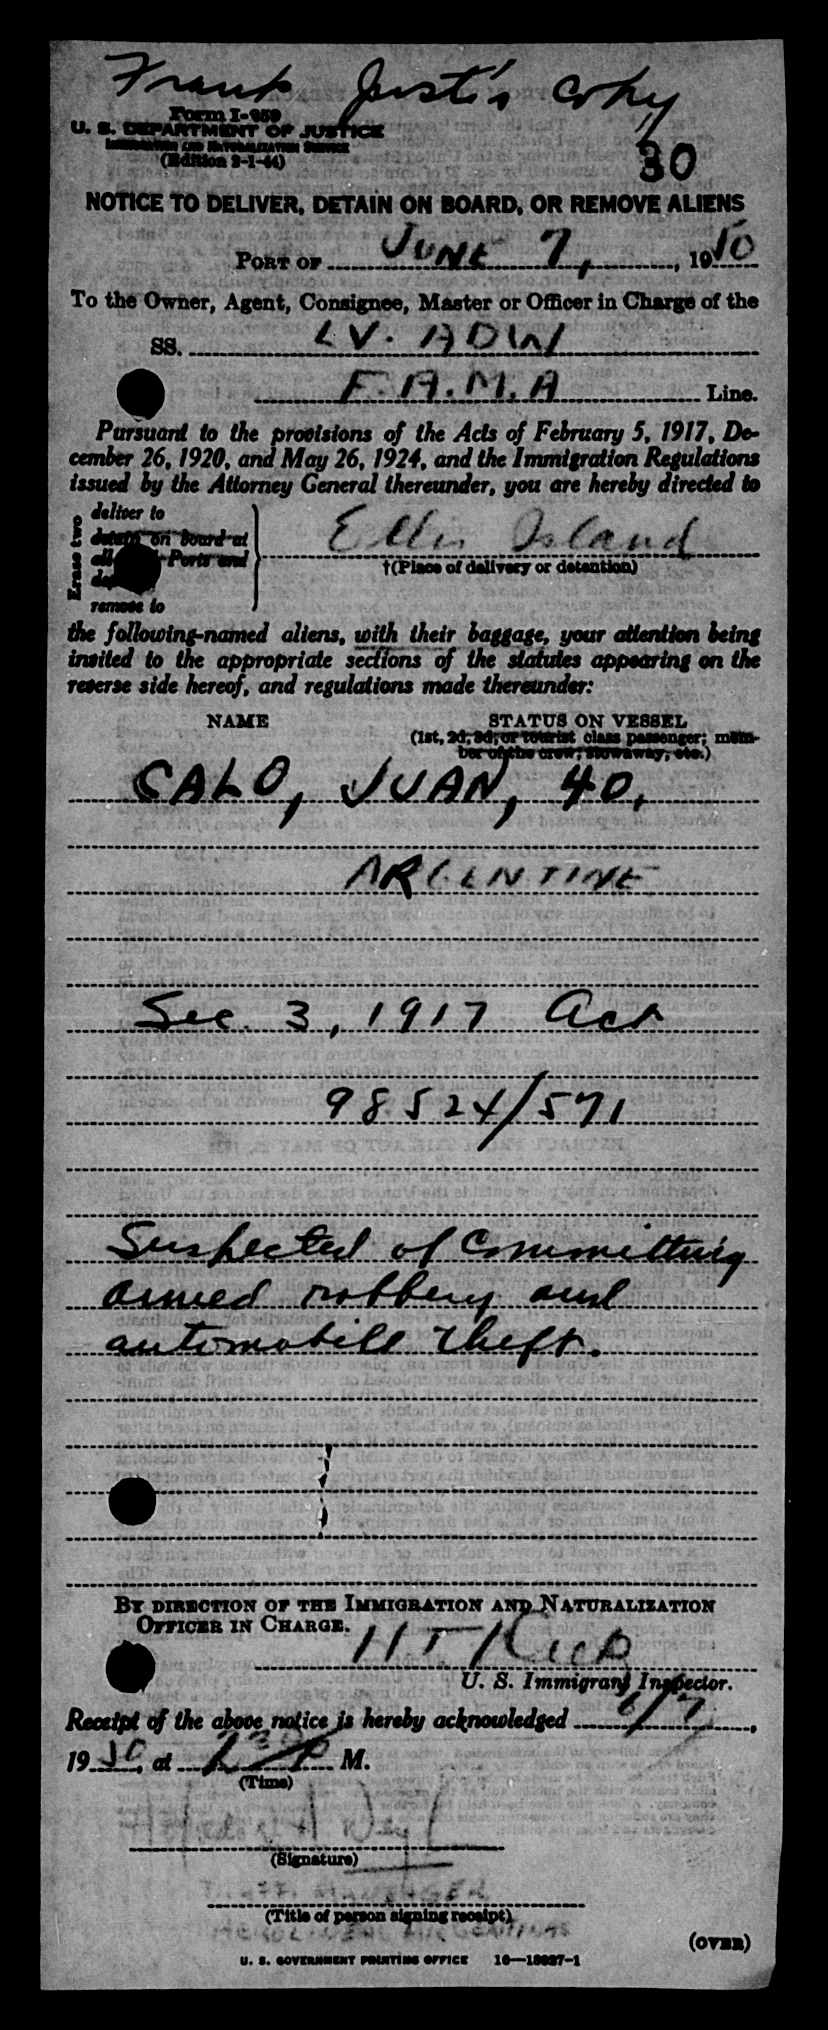 Frank Justi's Copy
Form I-259
U. S. DEPARTMENT OF JUSTICE
IMMIGRATION AND NATURALIZATION SERVICE
(Edition 2-1-44)
30
NOTICE TO DELIVER, DETAIN ON BOARD, OR REMOVE ALIENS
PORT OF JUNE 7, 1950
To the Owner, Agent, Consignee, Master or Officer in Charge of the
SS. LV. ADW
F.A.M.A Line.
Pursuant to the provisions of the Acts of February 5, 1917, De-
cember 26, 1920, and May 26, 1924, and the Immigration Regulations
issued by the Attorney General thereunder, you are hereby directed to
Erase two
deliver to
detain on board at
all Ports and
remove to
Ellis Island
†(Place of delivery or detention)
the following-named aliens, with their baggage, your attention being
invited to the appropriate sections of the statutes appearing on the
reverse side hereof, and regulations made thereunder:
NAME STATUS ON VESSEL
(1st, 2d, 3d, or tourist class passenger; mem-
ber of the crew, stowaway, etc.)
CALO, JUAN, 40,
ARGENTINE
Sec. 3, 1917 Act
98524/571
Suspected of Committing
armed robbery and
automobile theft.
BY DIRECTION OF THE IMMIGRATION AND NATURALIZATION
OFFICER IN CHARGE.
U. S. Immigrant Inspector.
Receipt of the above notice is hereby acknowledged 6/7,
1950, at M.
(Time)
(Signature)
(Title of person signing receipt)
(OVER)
U. S. GOVERNMENT PRINTING OFFICE 16—18027-1